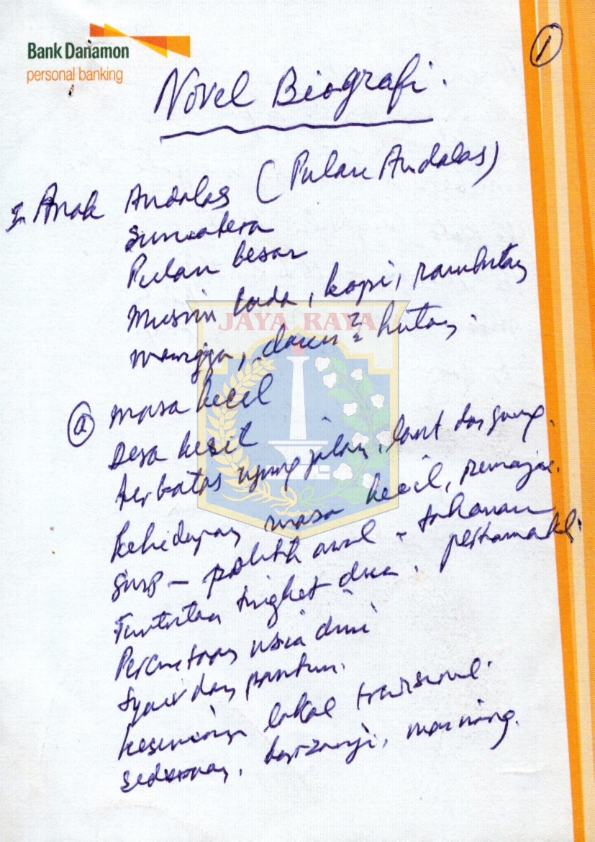 Bank Danamon
personal banking
1
Novel Biografi.
I. Anak Andalas (Pulau Andalas)
Sumatera
Pulau besar
Musim lada, kopi, rambutan
mangga, daun2 hutan.
JAYA RAYA
a masa kecil
Desa kecil
terbatas ujung jalan, laut dan gunung.
Kehidupan masa kecil, remaja.
SMP – politik awal – tahanan
Tuntutan tingkat dua. pertama kali
Percintaan usia dini
Syair dan pantun.
kesenian lokal tradisional.
barzanji,